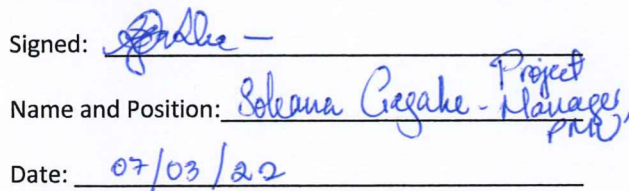 Signed:
Name and Position: Soleana Gagahe - Project Manager, PMU
Date: 07/03/22